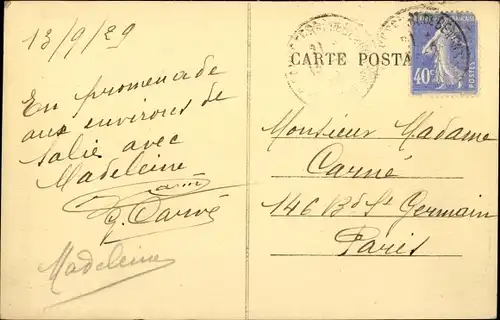 13/9/29
CARTE POSTA
40c
POSTES
En promenade
aux environs de
Salie avec
Madeleine
Madeleine
Monsieur Madame
Carné
146 Bd St Germain
Paris